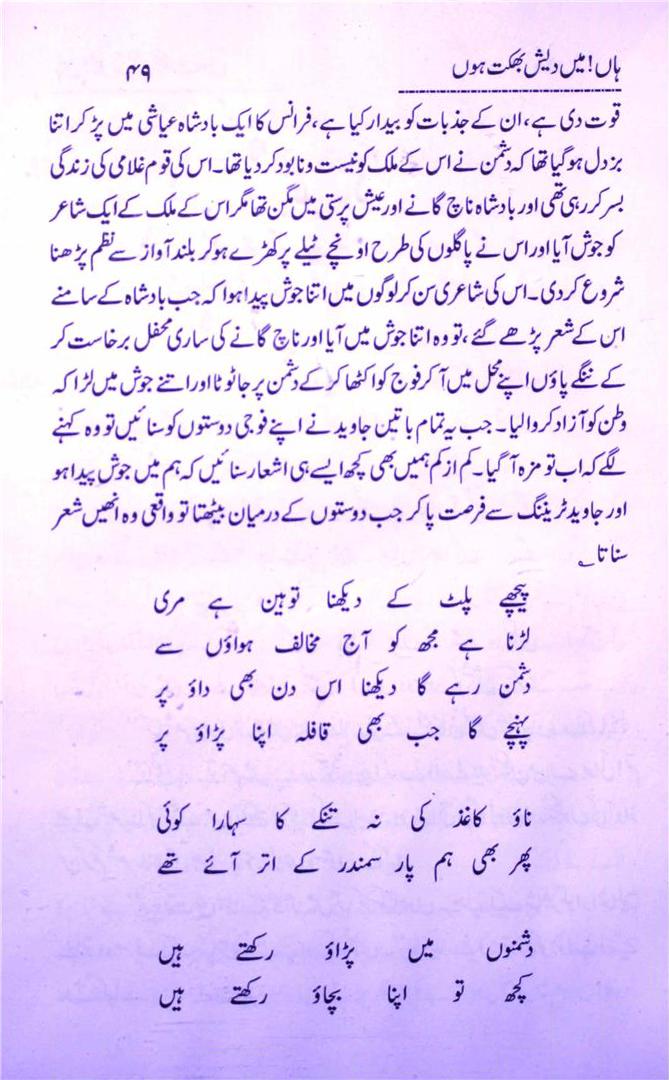 ہاں! میں دیش بھکت ہوں
۴۹
قوت دی ہے، ان کے جذبات کو بیدار کیا ہے، فرانس کا ایک بادشاہ عیاشی میں پڑ کر اتنا
بزدل ہوگیا تھا کہ دشمن نے اس کے ملک کو نیست و نابود کر دیا تھا۔ اس کی قوم غلامی کی زندگی
بسر کر رہی تھی اور بادشاہ ناچ گانے اور عیش پرستی میں مگن تھا مگر اس کے ملک کے ایک شاعر
کو جوش آیا اور اس نے پاگلوں کی طرح اونچے ٹیلے پر کھڑے ہوکر بلند آواز سے نظم پڑھنا
شروع کردی۔ اس کی شاعری سن کر لوگوں میں اتنا جوش پیدا ہوا کہ جب بادشاہ کے سامنے
اس کے شعر پڑھے گئے، تو وہ اتنا جوش میں آیا اور ناچ گانے کی ساری محفل برخاست کر
کے ننگے پاؤں اپنے محل میں آ کر فوج کو اکٹھا کر کے دشمن پر جا ٹوٹا اور اتنے جوش میں لڑا کہ
وطن کو آزاد کروالیا۔ جب یہ تمام باتیں جاوید نے اپنے فوجی دوستوں کو سنائیں تو وہ کہنے
لگے کہ اب تو مزہ آ گیا۔ کم از کم ہمیں بھی کچھ ایسے ہی اشعار سنائیں کہ ہم میں جوش پیدا ہو
اور جاوید ٹریننگ سے فرصت پا کر جب دوستوں کے درمیان بیٹھتا تو واقعی وہ انھیں شعر
سناتا۔
پیچھے پلٹ کے دیکھنا توہین ہے مری
لڑنا ہے مجھ کو آج مخالف ہواؤں سے
دشمن رہے گا دیکھنا اس دن بھی داؤ پر
پہنچے گا جب بھی قافلہ اپنا پڑاؤ پر
ناؤ کاغذ کی نہ تنکے کا سہارا کوئی
پھر بھی ہم پار سمندر کے اتر آئے تھے
دشمنوں میں پڑاؤ رکھتے ہیں
کچھ تو اپنا بچاؤ رکھتے ہیں